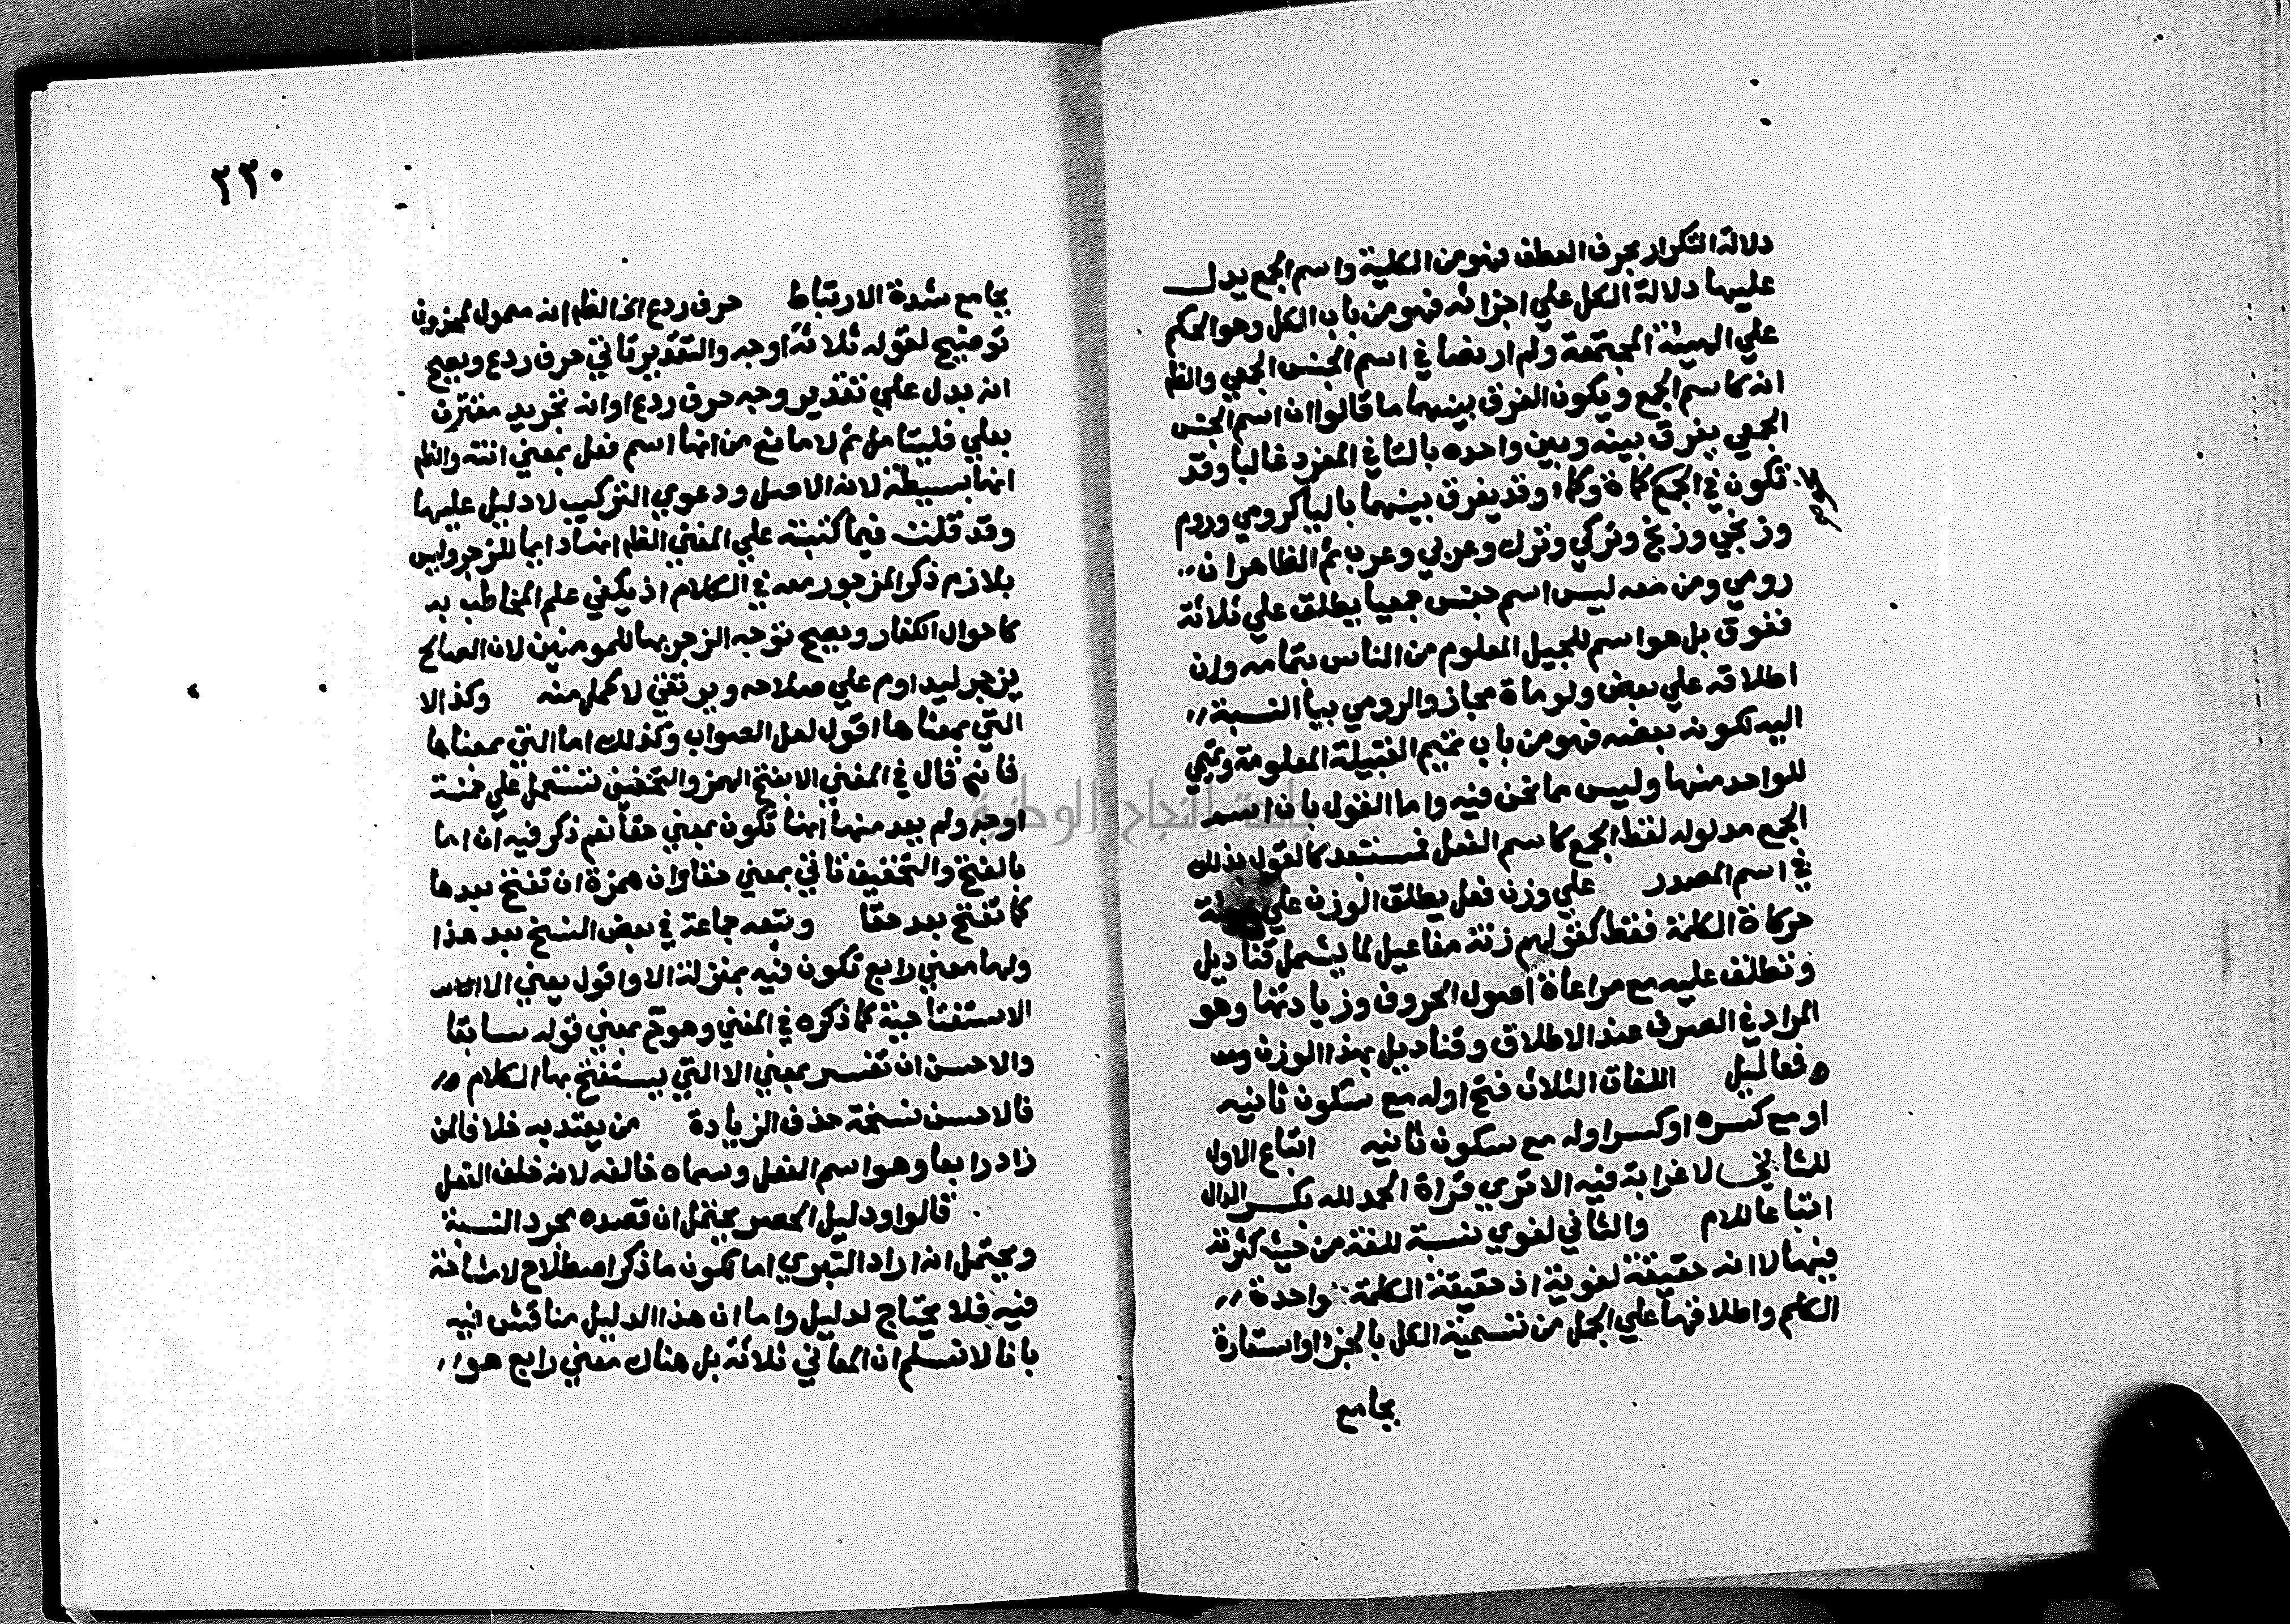 دلالة التكرار بحرف العطف فهو من الكلية واسم الجمع يدل
عليها دلالة الكل علي اجزائه فهو من باب الكل وهو الحكم
علي الهيئة المجتمعة ولم ار نصا في اسم الجنس الجمعي والظ
انه كاسم الجمع ويكون الفرق بينهما ما قالوا ان اسم الجنس
الجمعي يفرق بينه وبين واحده بالتا في المفرد غالبا وقد
تكون في الجمع كماة وكماء وقد يفرق بينهما باليا كرومي وروم
وزنجي وزنج وتركي وترك وعربي وعرب ثم الظاهر ان
رومي ومن معه ليس اسم جنس جمعيا يطلق علي ثلاثة
ففوق بل هو اسم للجيل المعلوم من الناس بتمامه وان
اطلاقه علي بعض ولو ماة مجاز والرومي بيا النسبة
اليه لكونه بعضه فهو من باب تميم القبيلة المعلومة وتميمي
للواحد منها وليس ما نحن فيه واما القول بان اسم
الجمع مدلوله لفظ الجمع كاسم الفعل فمستبعد كالقول بذلك
في اسم المصدر علي وزن فعل يطلق الوزن علي
حركاة الكلمة فقط كقولهم زنة مفاعيل لما يشمل قناديل
وتطلق عليه مع مراعاة اصول الحروف وزيادتها وهو
المراد في الصرف عند الاطلاق وقناديل بهذا الوزن
فعاليل اللغات الثلاث فتح اوله مع سكون ثانيه
او مع كسره او كسر اوله مع سكون ثانيه اتباع الاول
للثاني لا غرابة فيه الا تري قراة الحمد لله بكسر الدال
اتباعا للام والثاني لغوي نسبة للغة من حيث كثرته
فيها لا انه حقيقة لغوية اذ حقيقة الكلمة واحدة
الكلم واطلاقها علي الجمل من تسمية الكل بالجزء او استعارة
بجامع
٢٢٠
بجامع شدة الارتباط حرف ردع الخ الظ انه معمول لمحذوف
توضيح لقوله ثلاثة اوجه والتقدير تاتي حرف ردع ويصح
انه بدل علي تقدير وجه حرف ردع او انه تجريد مقترن
بعلي فليتامل ثم لا مانع من انها اسم فعل بمعني انته والظ
انها بسيطة لانه الاصل ودعوي التركيب لا دليل عليها
وقد قلت فيما كتبته علي المغني الظ انها دايما للزجر وليس
بلازم ذكر المزجور معه في الكلام اذ يكفي علم المخاطب به
كاحوال الكفار ويصح توجه الزجر بها للمومنين لان الصالح
يزجر ليداوم علي صلاحه ويرتقي لاكمل منه وكذا الا
التي بمعناها اقول لعل الصواب وكذلك اما التي بمعناها
فانه قال في المغني الا بفتح الهمز والتخفيف تستعمل علي خمسة
اوجه ولم يعد منها انها تكون بمعني حقا نعم ذكر فيه ان اما
بالفتح والتخفيف تاتي بمعني حقا وان همزة ان تفتح بعدها
كما تفتح بعد حقا وتبعه جماعة في بعض النسخ بعد هذا
ولها معني رابع تكون فيه بمنزلة الا واقول يعني الا
الاستفتاحية كما ذكره في المغني وهو ح بمعني قوله سابقا
والاحسن ان تفسر بمعني الا التي يستفتح بها الكلام
فالاحسن نسخة حذف الزيادة من يعتد به خلافا لمن
زاد رابعا وهو اسم الفعل وسماه خالفه لانه خلف الفعل
قالوا ودليل الحصر يحتمل ان قصده مجرد النسبة
ويحتمل انه اراد التبري اما لكون ما ذكر اصطلاح لا مشاحة
فيه فلا يحتاج لدليل واما ان هذا الدليل مناقش فيه
بانا لا نسلم ان المعاني ثلاثة بل هناك معني رابع هو